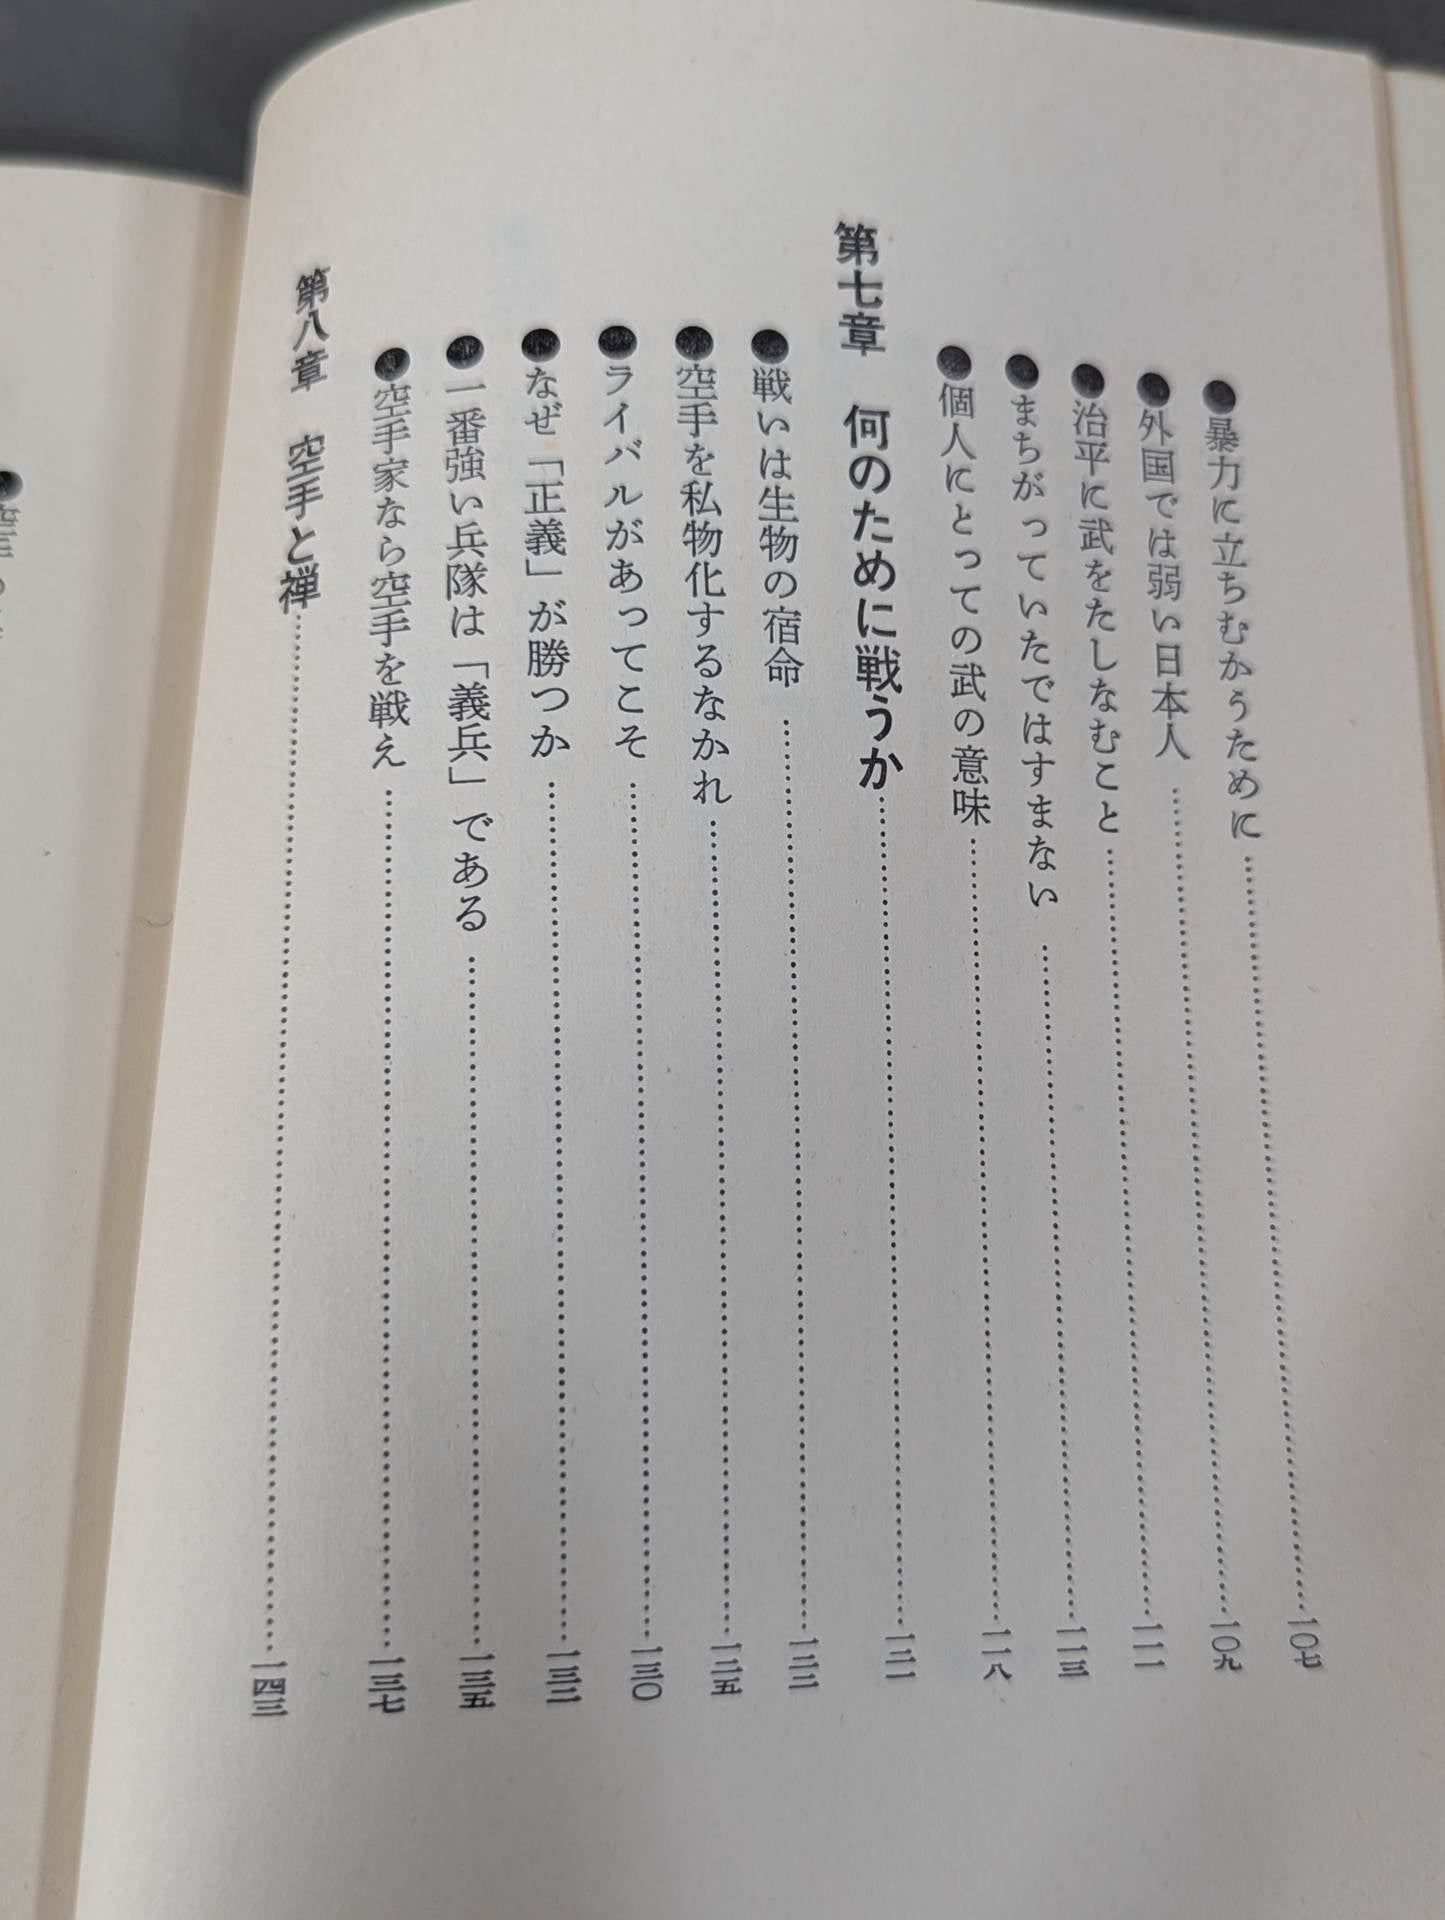 ●暴力に立ちむかうために……一〇七
●外国では弱い日本人……一〇九
●治平に武をたしなむこと……一一一
●まちがっていたではすまない……一一三
●個人にとっての武の意味……一一八
第七章　何のために戦うか……一二一
●戦いは生物の宿命……一二二
●空手を私物化するなかれ……一二五
●ライバルがあってこそ……一三〇
●なぜ「正義」が勝つか……一三二
●一番強い兵隊は「義兵」である……一三五
●空手家なら空手を戦え……一三七
第八章　空手と禅……一四三